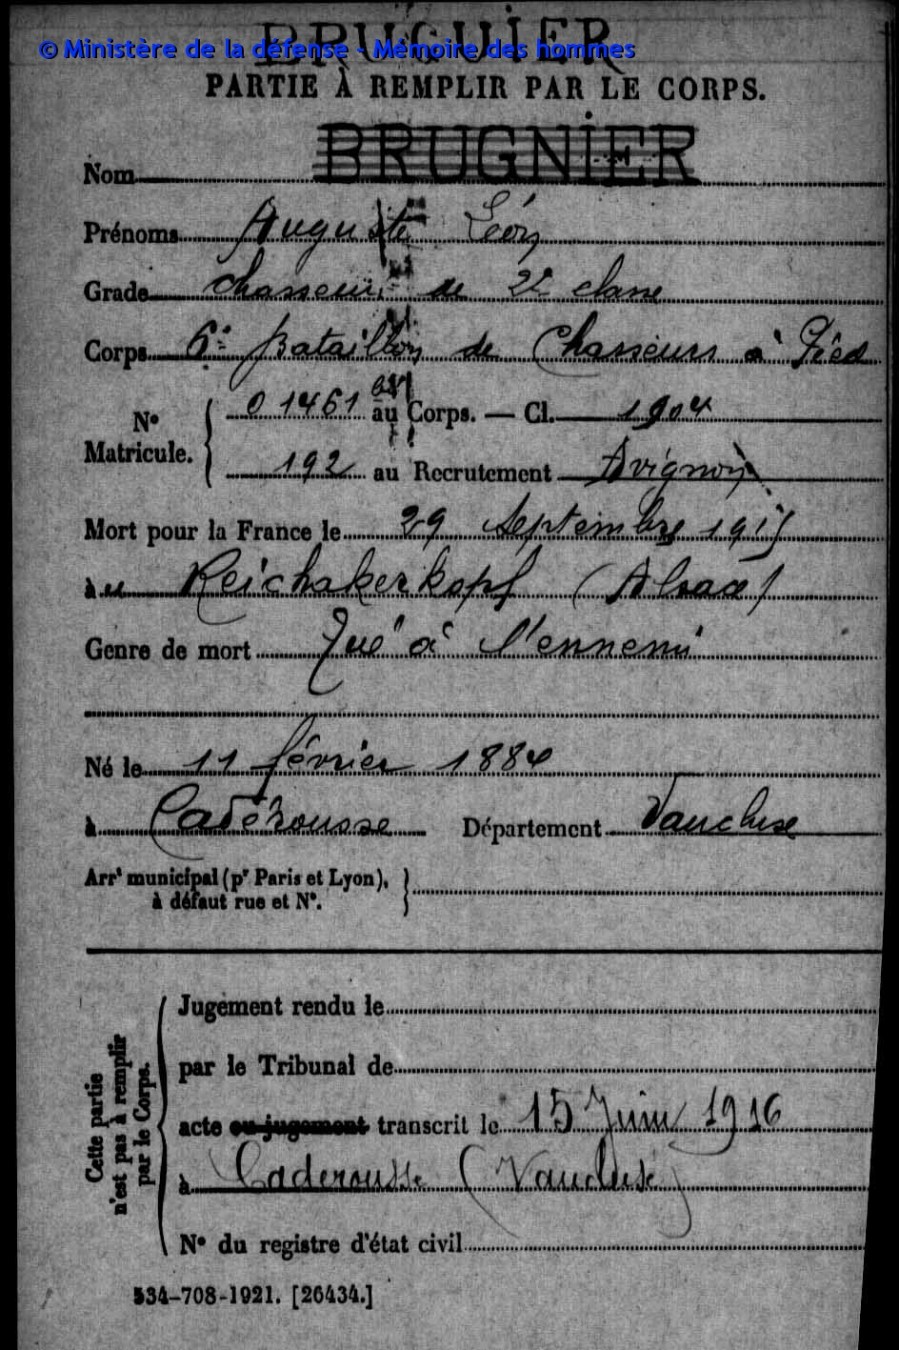 BRUGUIER
© Ministère de la défense - Mémoire des hommes
PARTIE À REMPLIR PAR LE CORPS.
Nom BRUGNIER
Prénoms Auguste Léon
Grade chasseur de 2e classe
Corps 6e Bataillon de Chasseurs à Pied
N° Matricule. 01461 au Corps. — Cl. 1904
192 au Recrutement Avignon
Mort pour la France le 29 Septembre 1915
à u Reichakerkopf (Alsace)
Genre de mort Tué à l'ennemi
Né le 11 février 1884
à Caderousse Département Vaucluse
Arrt municipal (pr Paris et Lyon),
à défaut rue et N°.
Cette partie
n'est pas à remplir
par le Corps.
Jugement rendu le
par le Tribunal de
acte ou jugement transcrit le 15 Juin 1916
à Caderousse (Vaucluse)
N° du registre d'état civil
534-708-1921. [26434.]